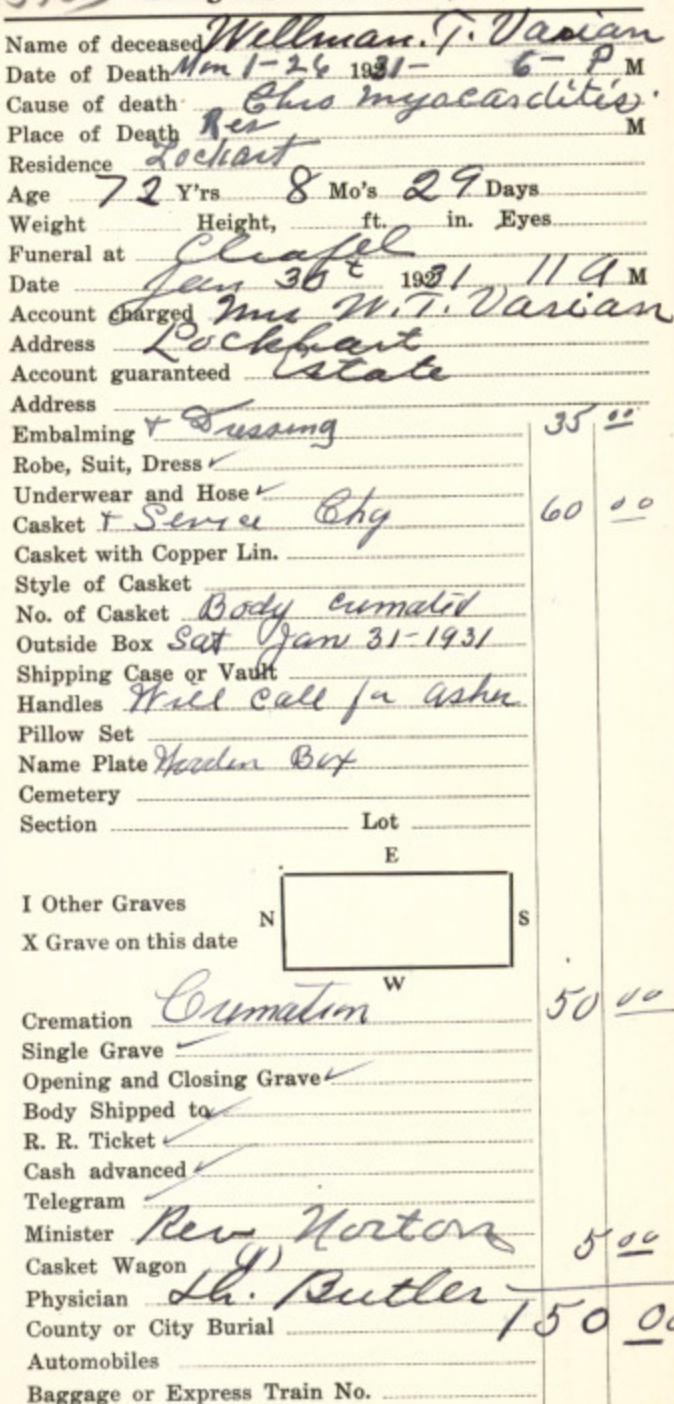 Name of deceased Wellman. T. Varian
Date of Death Mon 1-26 1931- 6- P M
Cause of death Chro myocarditis.
Place of Death Res M
Residence Lockart
Age 72 Y'rs 8 Mo's 29 Days
Weight Height, ft. in. Eyes
Funeral at Chapel
Date Jan 30t 1931 11 A M
Account charged Mrs W. T. Varian
Address Lockhart
Account guaranteed Estate
Address
Embalming + Dressing 35 00
Robe, Suit, Dress ✓
Underwear and Hose ✓
Casket + Service Chg 60 00
Casket with Copper Lin.
Style of Casket
No. of Casket Body cremated
Outside Box Sat Jan 31-1931
Shipping Case or Vault
Handles Will call for ashes
Pillow Set
Name Plate Wooden Box
Cemetery
Section Lot
E
I Other Graves
N S
X Grave on this date
W
Cremation Cremation 50 00
Single Grave ✓
Opening and Closing Grave ✓
Body Shipped to ✓
R. R. Ticket ✓
Cash advanced ✓
Telegram ✓
Minister Rev Norton 5 00
Casket Wagon
Physician Butler 150 00
County or City Burial
Automobiles
Baggage or Express Train No.